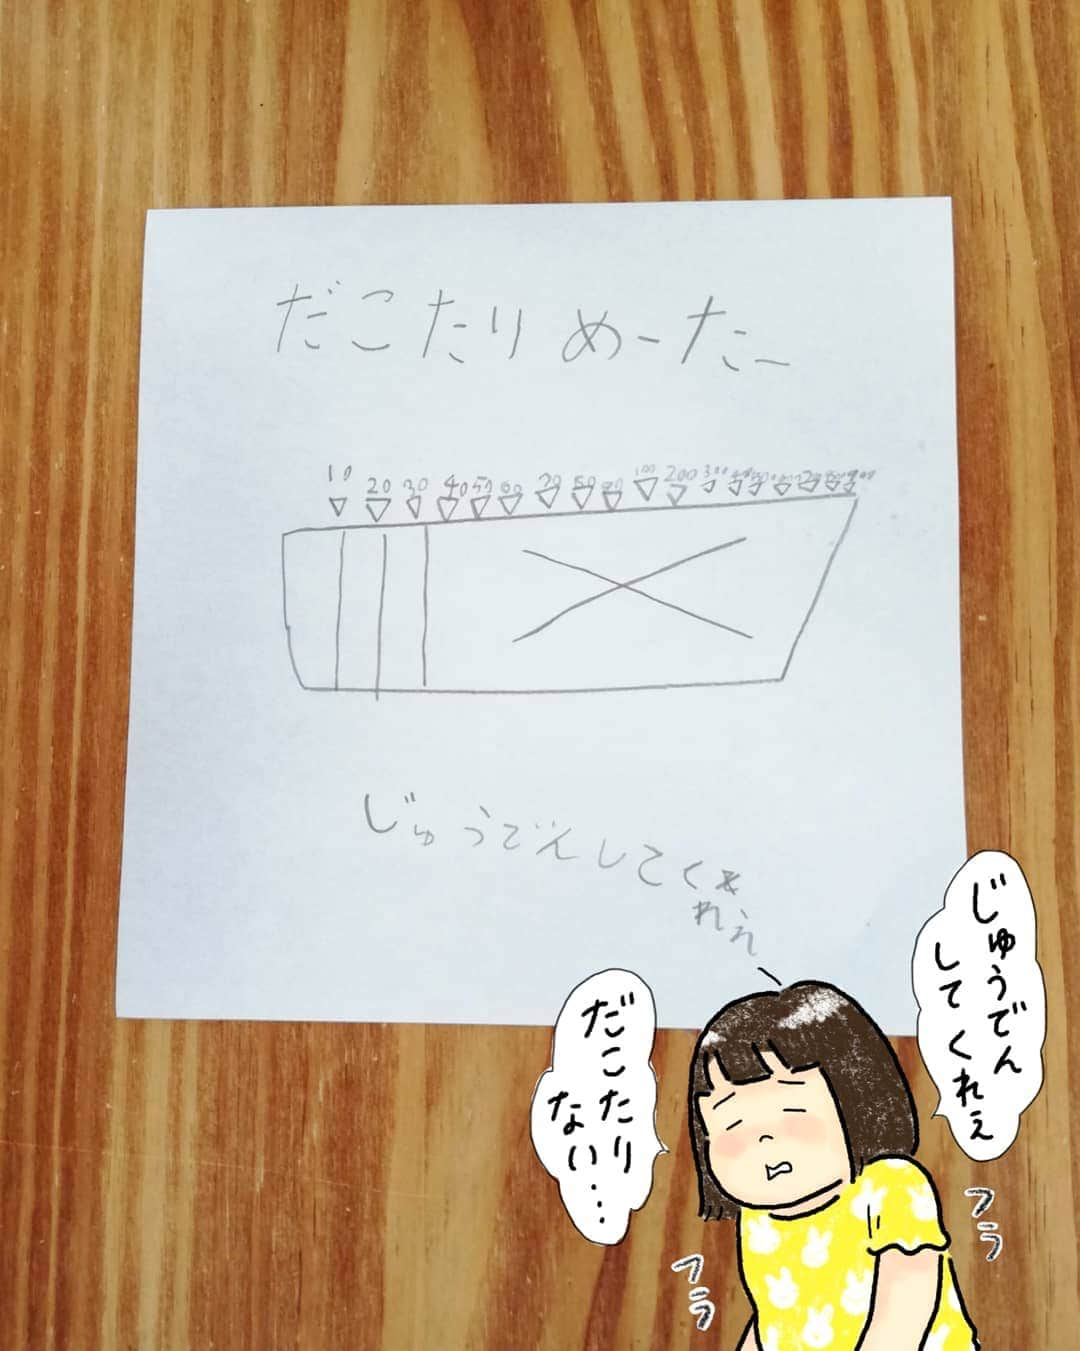 だこたりめーたー
10 20 30 40 50 60 70 80 90 100 200 300
じゅうでんしてく
れぇ
じゅうでん
してくれぇ
だこたり
ない・・・
フラ
フラ